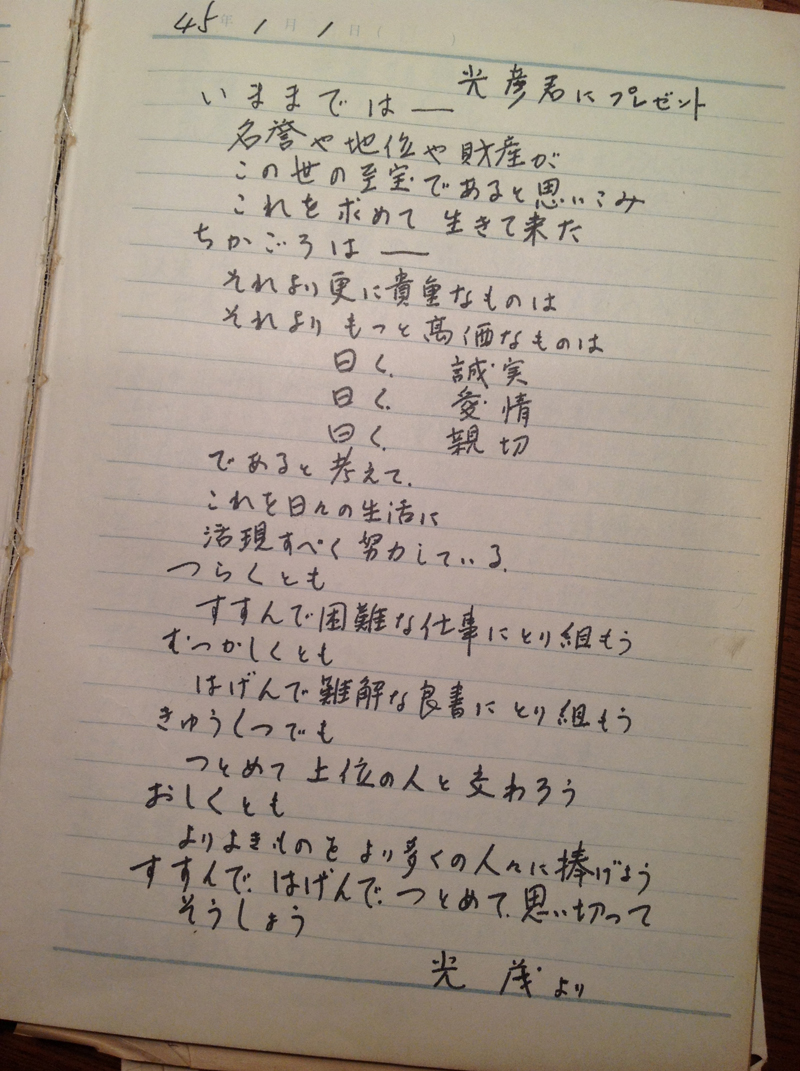 45年 1月 1日（　　）
光彦君にプレゼント
いままでは―
名誉や地位や財産が
この世の至宝であると思いこみ
これを求めて生きて来た
ちかごろは―
それより更に貴重なものは
それよりもっと高価なものは
曰く、誠実
曰く、愛情
曰く、親切
であると考えて、
これを日々の生活に
活現すべく努力している。
つらくとも
すすんで困難な仕事にとり組もう
むつかしくとも
はげんで難解な良書にとり組もう
きゅうくつでも
つとめて上位の人と交わろう
おしくとも
よりよきものをより多くの人々に捧げよう
すすんで、はげんで、つとめて、思い切って
そうしょう
光茂より